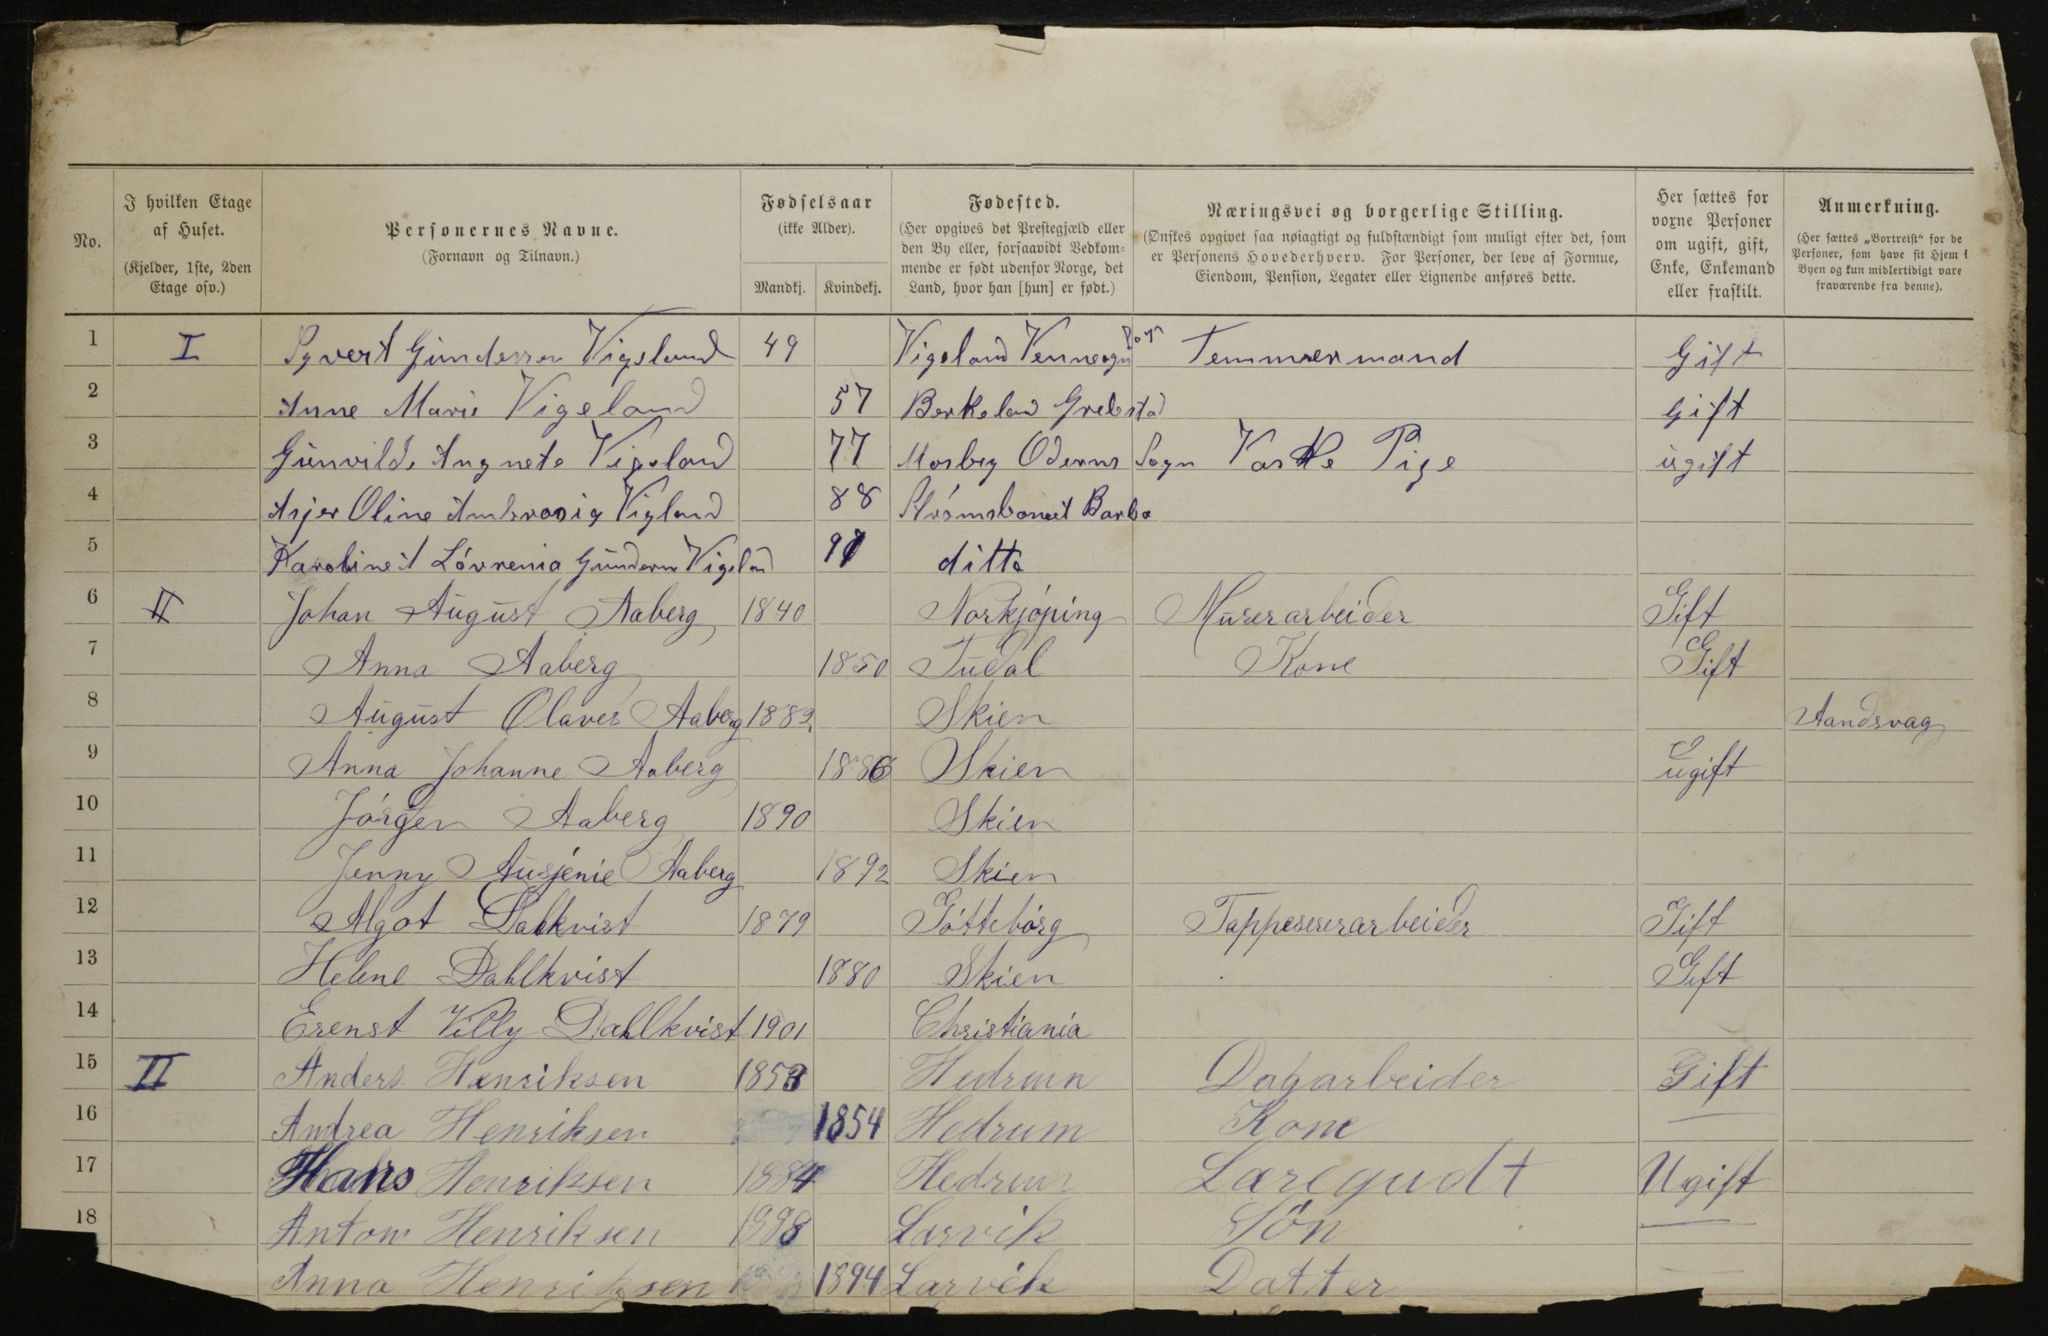 No.
I hvilken Etage af Huset. (Kjelder, 1ste, 2den Etage osv.)
Personernes Navne. (Fornavn og Tilnavn.)
Fødselsaar (ikke Alder). Mandkj. Kvindekj.
Fødested. (Her opgives det Prestegjæld eller den By eller, forsaavidt Vedkommende er født udenfor Norge, det Land, hvor han [hun] er født.)
Næringsvei og borgerlige Stilling. (Ønskes opgivet saa nøiagtigt og fuldstændigt som muligt efter det, som er Personens Hovederhverv. For Personer, der leve af Formue, Eiendom, Pension, Legater eller Lignende anføres dette.
Her sættes for voxne Personer om ugift, gift, Enke, Enkemand eller fraskilt.
Anmerkning. (Her sættes „Bortreist“ for de Personer, som have sit Hjem i Byen og kun midlertidigt vare fraværende fra denne).
1 I Syvert Gundersen Vigeland 49 Vigeland Vennesogn Temmermand Gift
2 Anne Marie Vigeland 57 Berkeland Grebstad gift
3 Gunvilde Angnete Vigeland 77 Mosbey Oderns Sogn Vaske Pige ugift
4 Asjer Oline Ambrosia Vigland 88 Strömsboneset Barbo
5 Karoline Lövrenia Vigeland 91 ditto
6 II Johan August Aaberg 1840 Norkjöping Murerarbeider Gift
7 Anna Aaberg 1850 Tudal Kone Gift
8 August Olaves Aaberg 1882 Skien Aandsvag
9 Anna Johanne Aaberg 1886 Skien ugift
10 Jörgen Aaberg 1890 Skien
11 Jenny Ausjenie Aaberg 1892 Skien
12 Algot Dahlkvist 1879 Göttebörg Tappesererarbeider Gift
13 Helene Dahlkvist 1880 Skien Gift
14 Erenst Villy Dahlkvist 1901 Christiania
15 II Anders Henriksen 1853 Hedrum Dagarbeider Gift
16 Andrea Henriksen 1854 Hedrum Kone —
17 Hans Henriksen 1884 Hedrum Læregudt Ugift
18 Anton Henriksen 1898 Larvik Sön —
Anna Henriksen 1894 Larvik Datter —